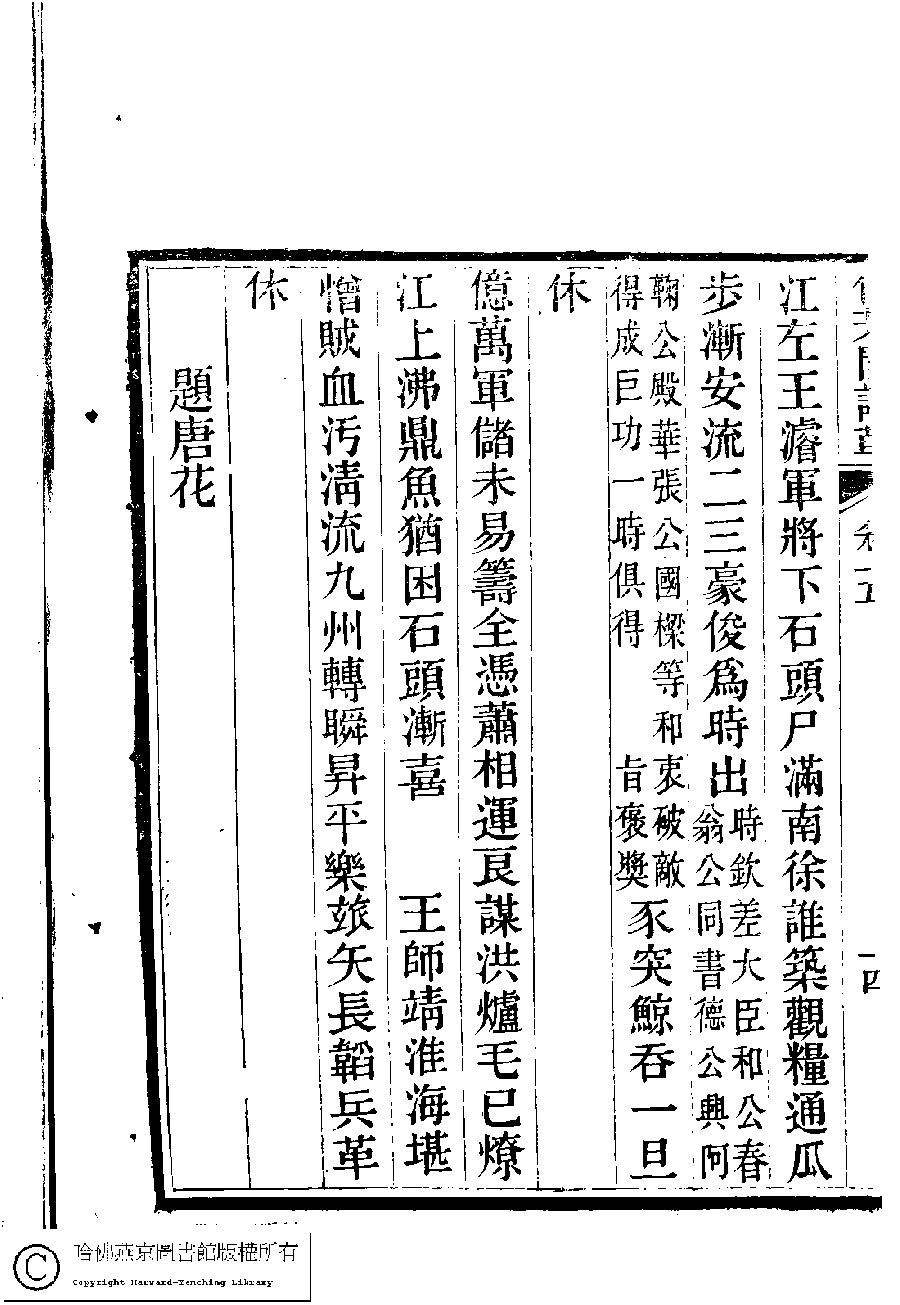 江左王濬軍將下石頭尸滿南徐誰築觀糧通瓜
步漸安流二三豪俊爲時出
時欽差大臣和公春
翁公同書德公興阿
鞠公殿華張公國樑等和衷破敵
得成巨功一時俱得 旨褒獎
豕突鯨吞一旦
休
億萬軍儲未易籌全憑蕭相運良謀洪爐毛已燎
江上沸鼎魚猶困石頭漸喜 王師靖淮海堪
憎賊血汚淸流九州轉瞬昇平樂玈矢長韜兵革
休
題唐花
哈佛燕京圖書館版權所有
Copyright Harvard-Yenching Library